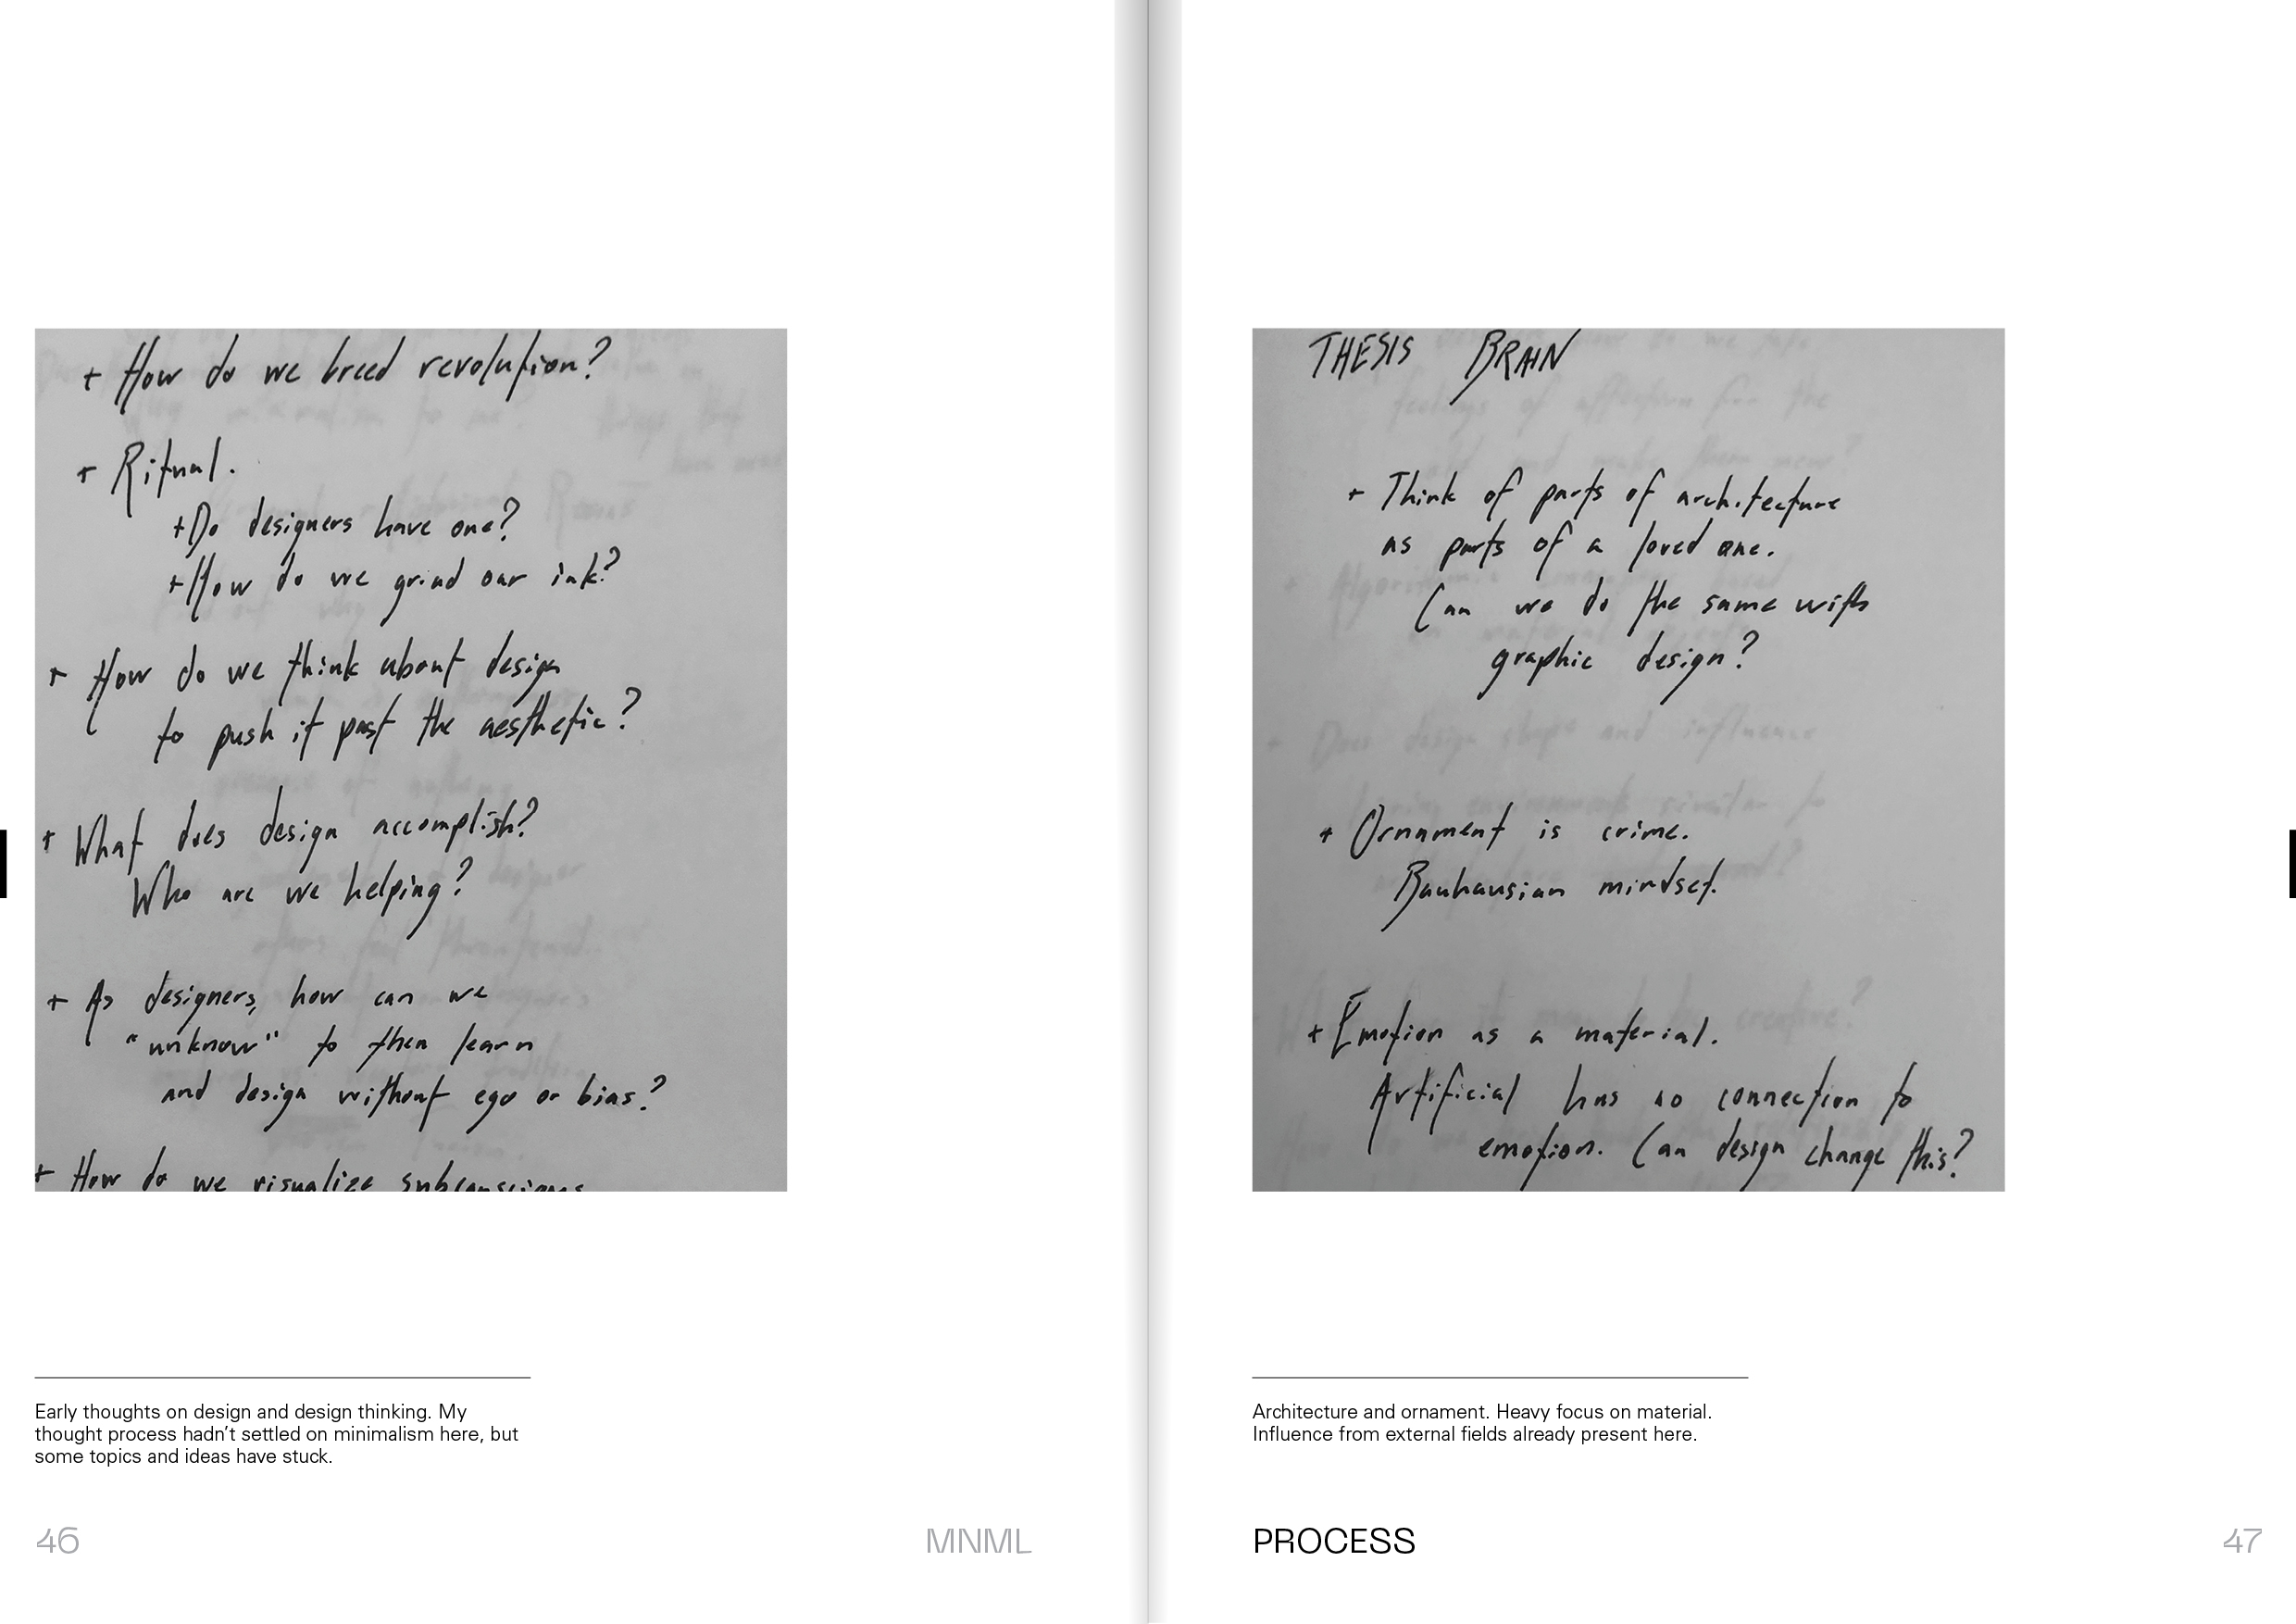 + How do we breed revolution?
+ Ritual.
+ Do designers have one?
+ How do we grind our ink?
+ How do we think about design
to push it past the aesthetic?
+ What does design accomplish?
Who are we helping?
+ As designers, how can we
"unknow" to then learn
and design without ego or bias?
+ How do we visualize subconscious
Early thoughts on design and design thinking. My
thought process hadn't settled on minimalism here, but
some topics and ideas have stuck.
46
MNML
THESIS BRAIN
+ Think of parts of architecture
as parts of a loved one.
Can we do the same with
graphic design?
+ Ornament is crime.
Bauhausian mindset.
+ Emotion as a material.
Artificial has no connection to
emotion. Can design change this?
Architecture and ornament. Heavy focus on material.
Influence from external fields already present here.
PROCESS
47